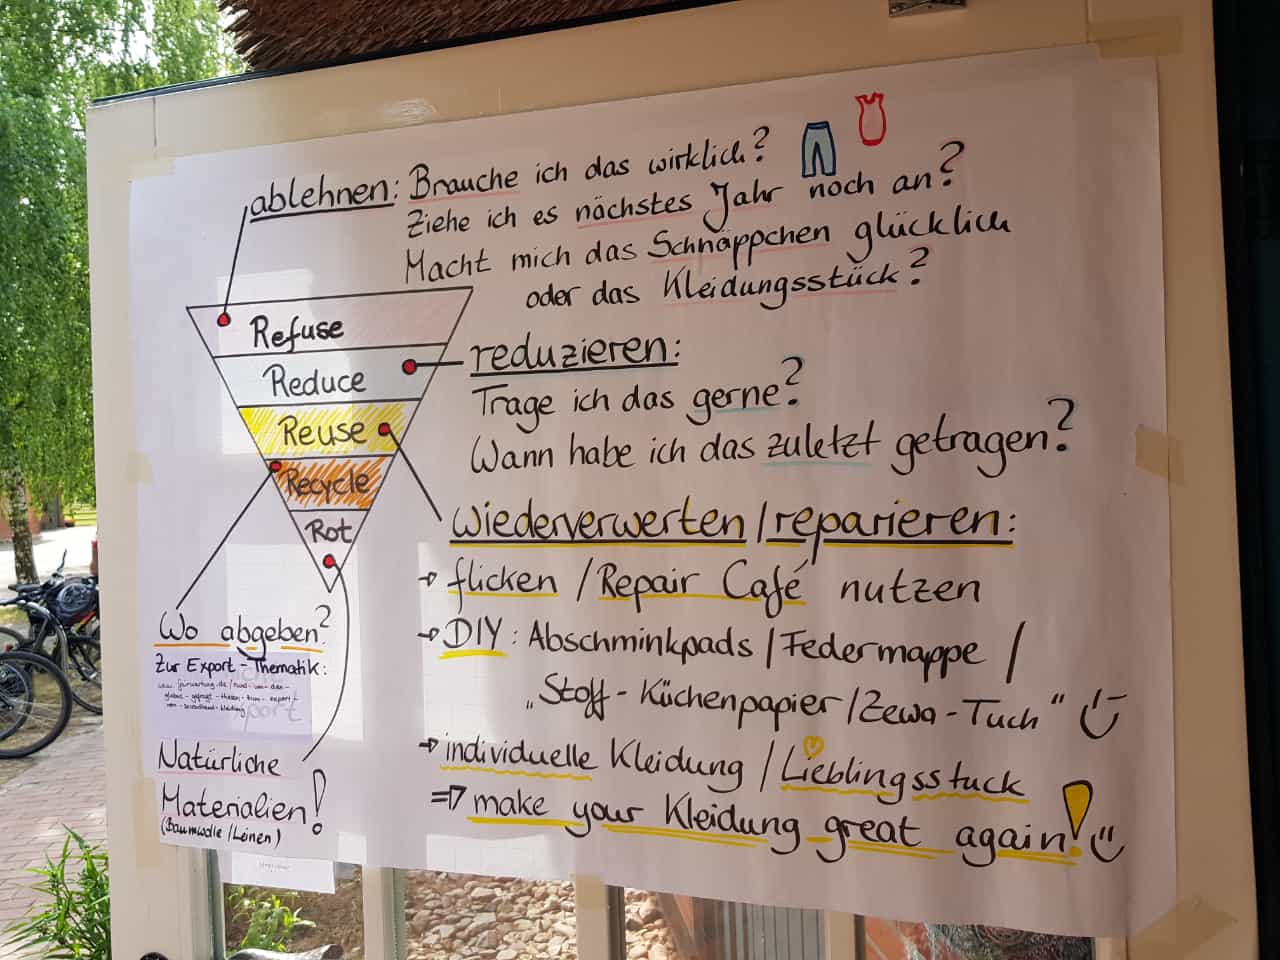 ablehnen: Brauche ich das wirklich?
Ziehe ich es nächstes Jahr noch an?
Macht mich das Schnäppchen glücklich
oder das Kleidungsstück?
Refuse
Reduce
Reuse
Recycle
Rot
reduzieren:
Trage ich das gerne?
Wann habe ich das zuletzt getragen?
wiederverwerten/reparieren:
→ flicken / Repair Café nutzen
→ DIY: Abschminkpads / Federmappe /
„Stoff-Küchenpapier/Zewa-Tuch"
→ individuelle Kleidung / Lieblingsstück
⇒ make your Kleidung great again!
Wo abgeben?
Zur Export-Thematik:
www.fairwertung.de/rund-um-den-
export-
von-secondhand-kleidung
Natürliche
Materialien!
(Baumwolle/Leinen)